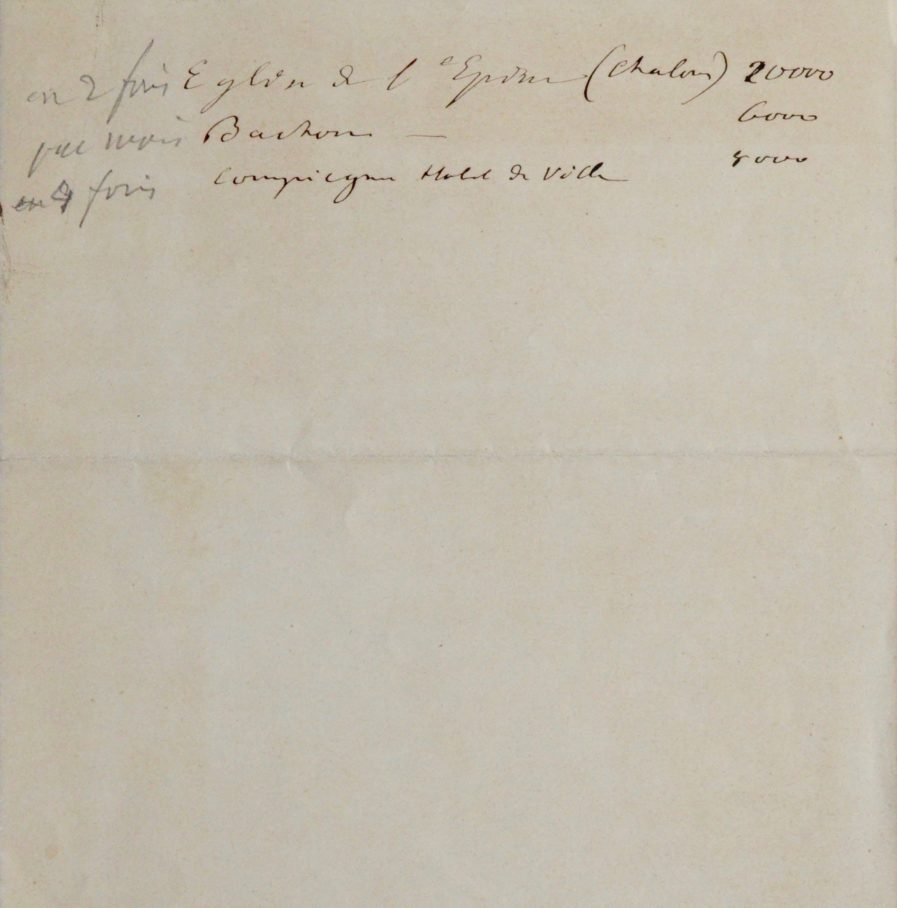 en 2 fois Eglise de l'Epine (Chalons) 20000
par mois 6000
en 4 fois Compiegne Hotel de Ville 8000